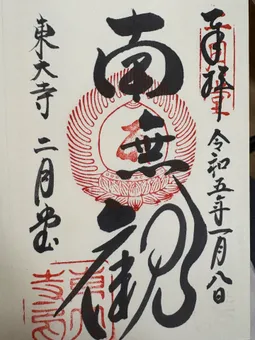 奉拝
令和五年一月八日
南無観
東大寺 二月堂